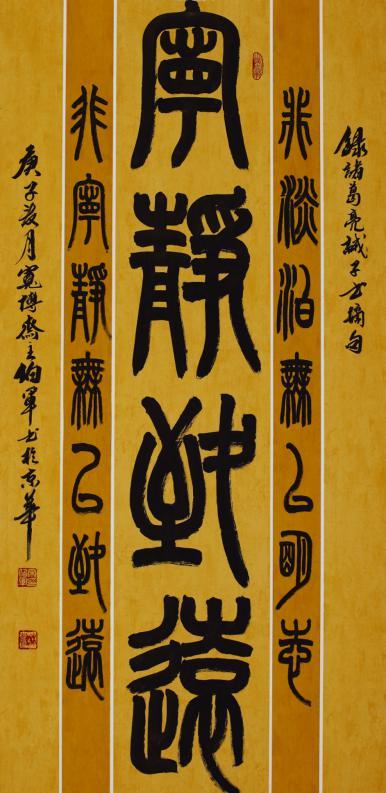 錄諸葛亮誡子書摘句
非淡泊無以明志
寧靜致遠
非寧靜無以致遠
庚子月寬博齋主軍書於京華